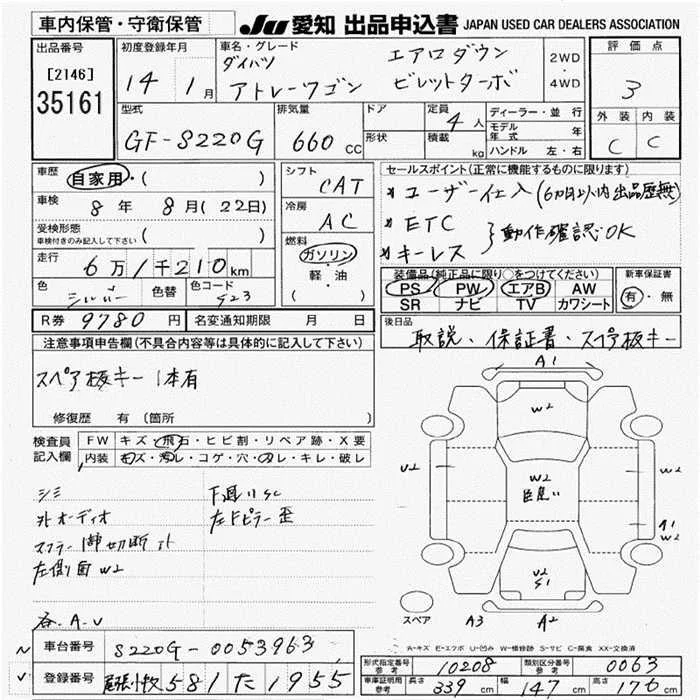 車内保管・守衛保管
JU 愛知 出品申込書 JAPAN USED CAR DEALERS ASSOCIATION
出品番号
[2146]
35161
初度登録年月
14 1月
車名・グレード
ダイハツ エアロダウン
アトレーワゴン ビレットターボ
2WD
・
4WD
評価点
3
外装 内装
C C
型式
GF-S220G
排気量
660 cc
ドア
形状
定員 4人
積載 kg
ディーラー・並行
モデル年式 年
ハンドル 左・右
車歴
自家用・( )
車検
8年 8月(22日)
受検形態
車検付きのみ記入して下さい ( )
走行
6万1千210km
色 シルバー 色替 色コード S23
シフト
CAT
冷房
AC
燃料
ガソリン
軽・油
( )
セールスポイント(正常に機能するものに限ります)
* ユーザー仕入(6カ月以内出品歴無)
* ETC
* キーレス
動作確認OK
装備品(純正品に限り○をつけてください)
PS PW エアB AW
SR ナビ TV カワシート
新車保証書
有・無
R券 9780円 名変通知期限 月 日
後日品
取説、保証書、スペア板キー
注意事項申告欄(不具合内容等は具体的に記入して下さい)
スペア板キー1本有
修復歴 有(箇所 )
検査員
記入欄
FW キズ・飛石・ヒビ割・リペア跡・X要
内装 キズ・汚レ・コゲ・穴・ヌレ・キレ・破レ
シミ
外オーディオ
マフラー
左側面W2
各.A.U
左Fピラー歪
A1
W2
U2
W2
W2
A1
W2
W2
S1
スペア
A3
A2
A-キズ E-エクボ U-凹み W-補修跡 S-サビ C-腐食 XX-交換済
車台番号 S220G-0053963
登録番号 尾張小牧 581 た 1955
形式指定番号
参考
10208
類別区分番号
参考
0063
車庫証明用
参考
長さ 339cm 幅 147cm 高さ 176cm